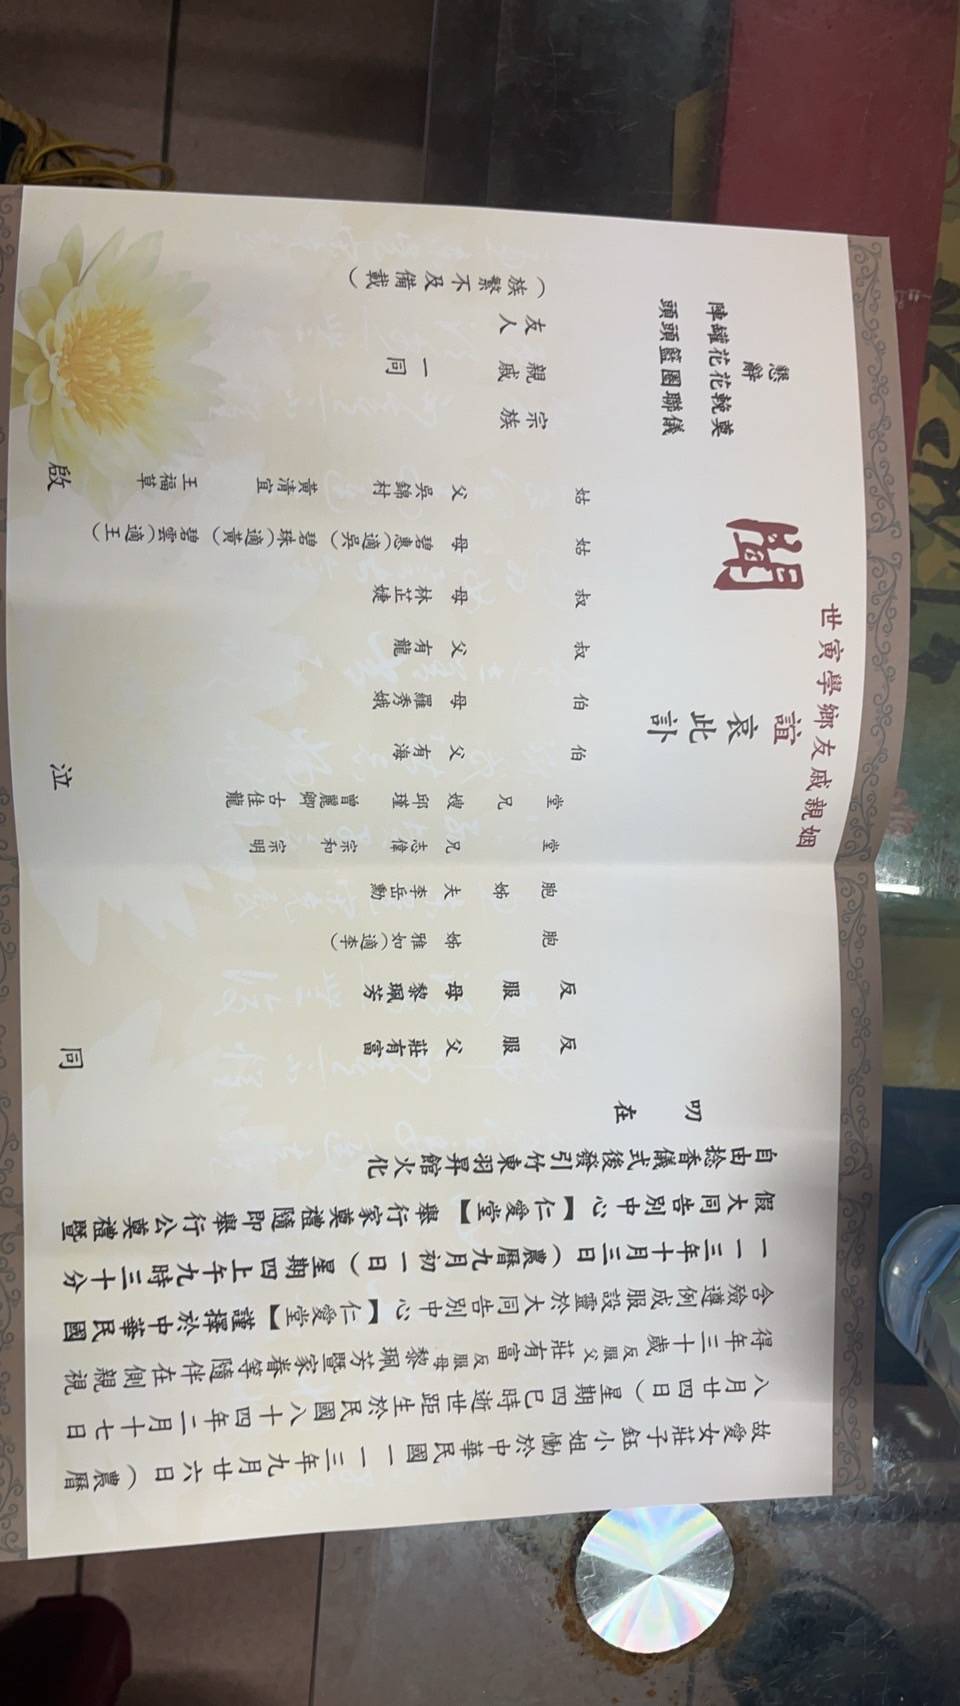 故愛女莊子鈺小姐慟於中華民國一一三年九月廿六日（農曆
八月廿四日）星期四巳時逝世距生於民國八十四年二月十七日
得年三十歲反服父莊有富反服母黎珮芳暨家眷等隨伴在側親視
含殮遵例成服設靈於大同告別中心【仁愛堂】謹擇於中華民國
一一三年十月三日（農曆九月初一日）星期四上午九時三十分
假大同告別中心【仁愛堂】舉行家奠禮隨即舉行公奠禮暨
自由捻香儀式後發引竹東羽昇館火化
叨在
反服父莊有富
反服母黎珮芳
胞姊雅如（適李）
胞姊夫李岳勳
堂兄志偉 宗和 宗明
堂兄嫂邱瑾 曾麗卿 古佳龍
伯父有海
伯母羅秀娥
叔父有龍
叔母林芷婕
姑母碧惠（適吳） 碧珠（適黃） 碧雲（適王）
姑父吳錦村 黃清宜 王福草
宗族
親戚一同
友人
（族繁不及備載）
同泣啟
姻親戚友鄉學寅世
誼
哀此訃
聞
懇辭
奠儀
輓聯
花圈
花籃
罐頭
陣頭